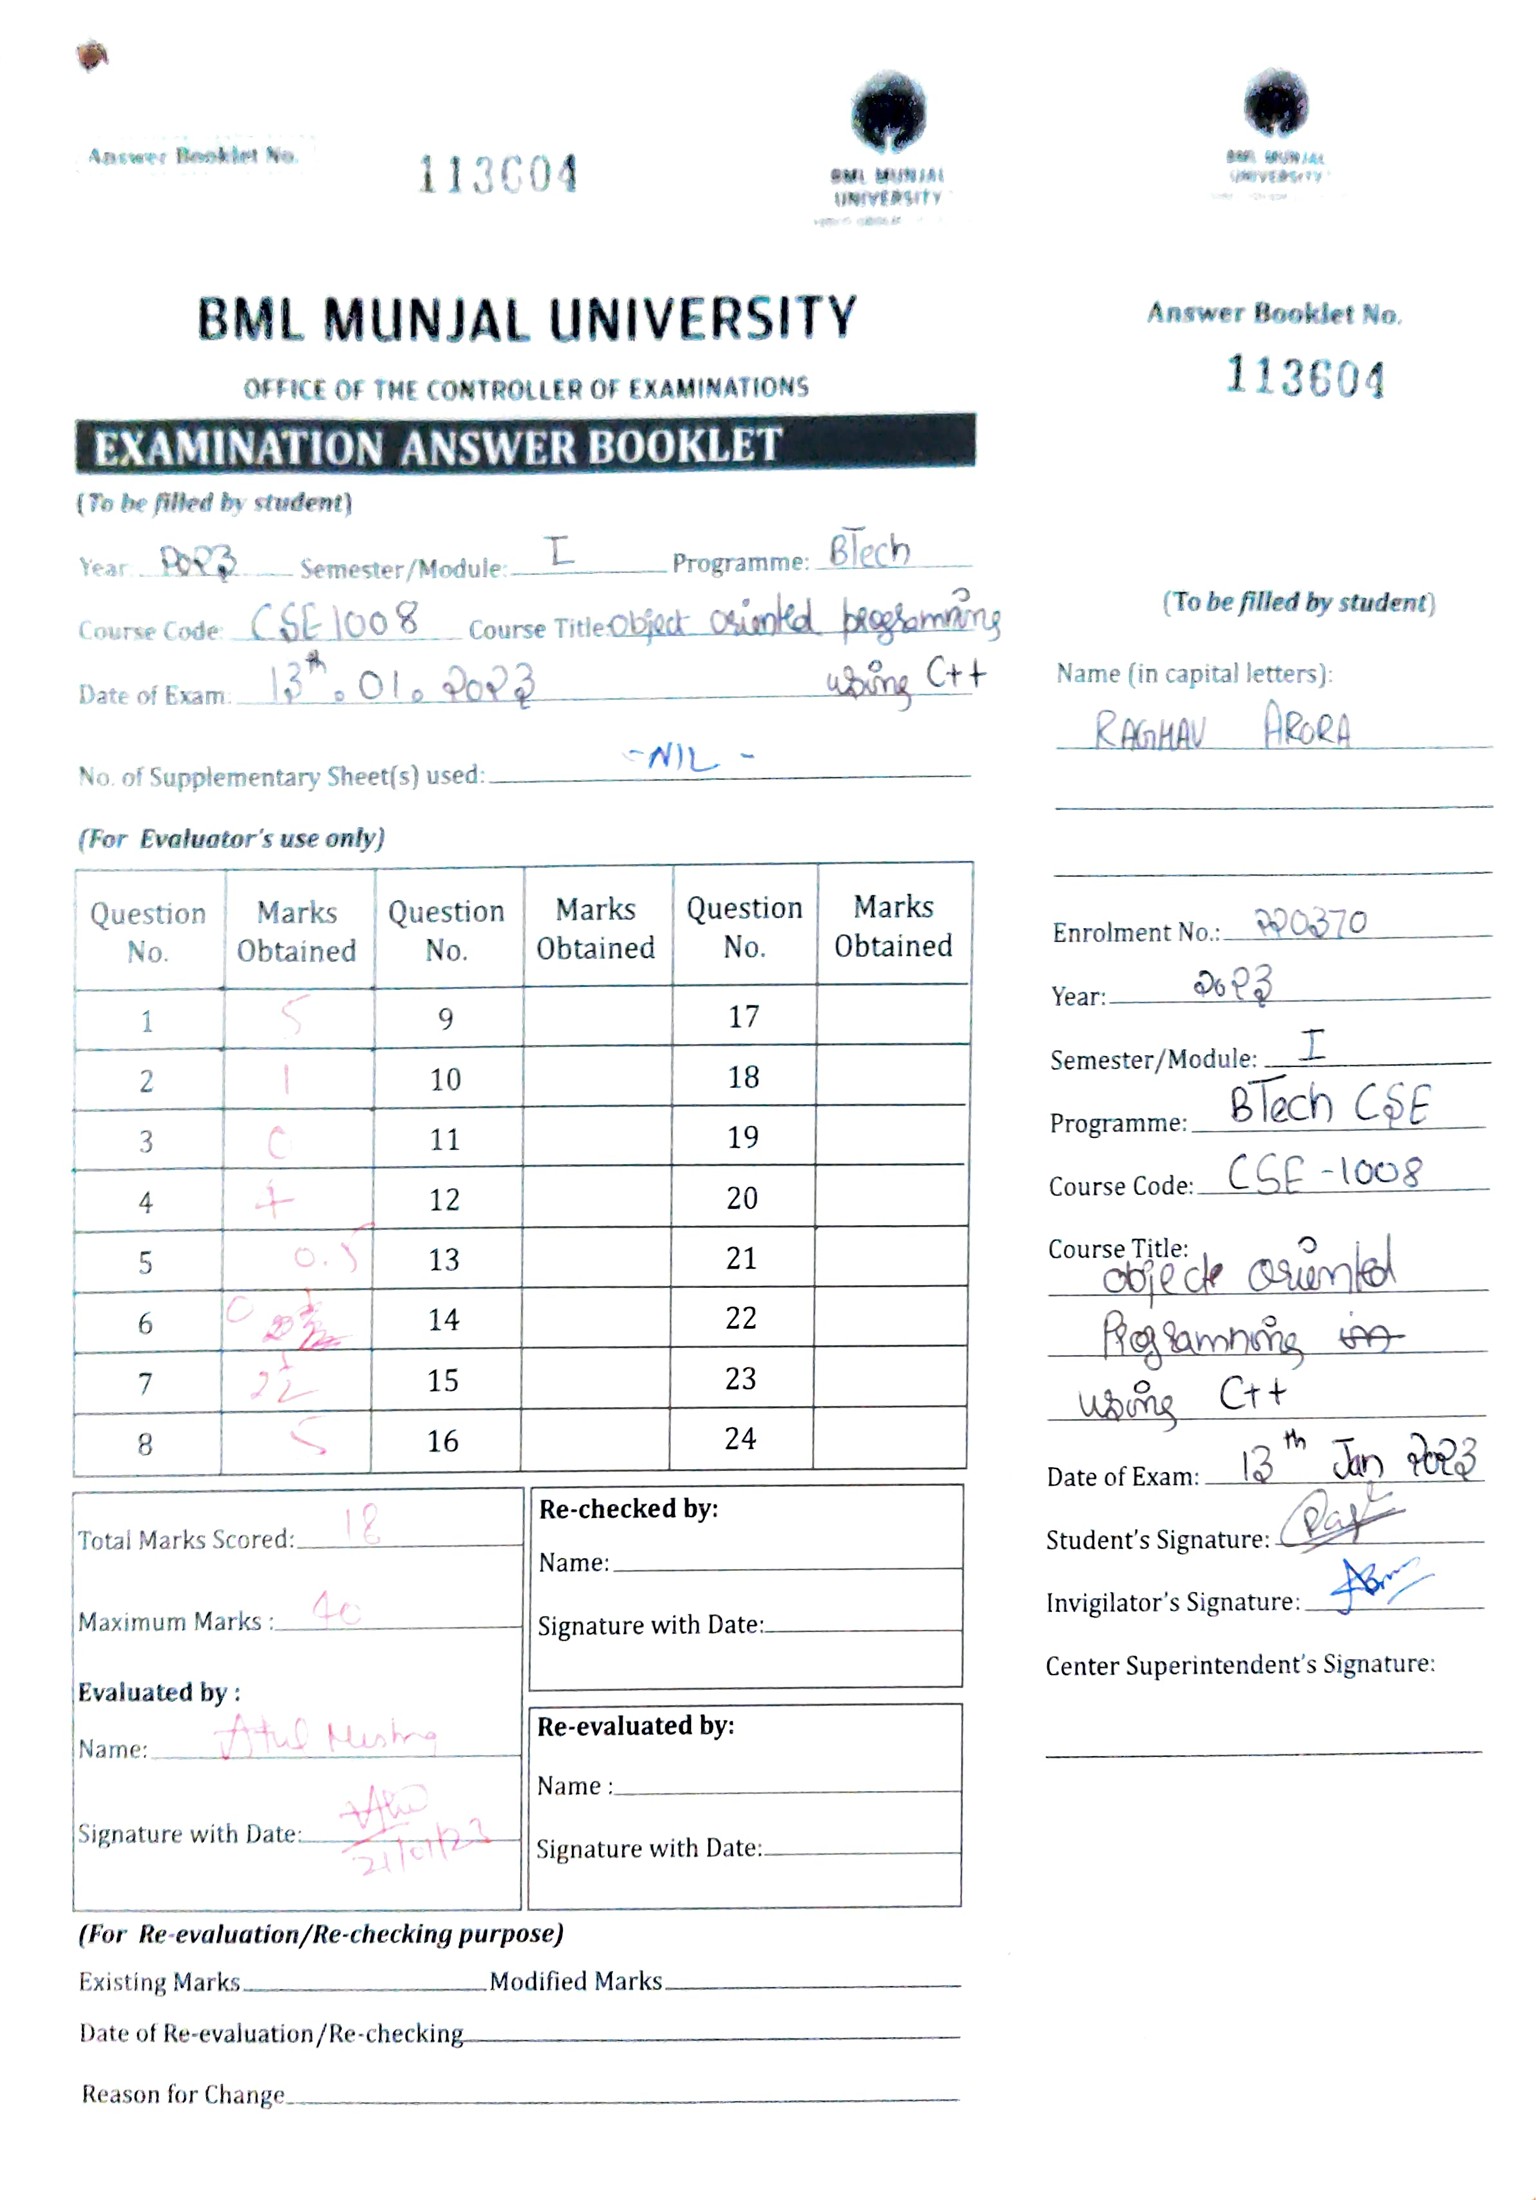 Answer Booklet No.
113604
BML MUNJAL
UNIVERSITY
BML MUNJAL
UNIVERSITY
BML MUNJAL UNIVERSITY
OFFICE OF THE CONTROLLER OF EXAMINATIONS
EXAMINATION ANSWER BOOKLET
(To be filled by student)
Year 2023 Semester/Module: I Programme: BTech
Course Code: CSE1008 Course Title: Object oriented programming
using C++
Date of Exam: 13th. 01. 2023
No. of Supplementary Sheet(s) used: -NIL-
(For Evaluator's use only)
Question No. Marks Obtained Question No. Marks Obtained Question No. Marks Obtained
1 5 9 17
2 1 10 18
3 0 11 19
4 12 20
5 0.5 13 21
6 14 22
7 15 23
8 5 16 24
Total Marks Scored: 18
Maximum Marks : 40
Evaluated by :
Name: Atul
Signature with Date: 21/01/23
Re-checked by:
Name:
Signature with Date:
Re-evaluated by:
Name :
Signature with Date:
(For Re-evaluation/Re-checking purpose)
Existing Marks Modified Marks
Date of Re-evaluation/Re-checking
Reason for Change
Answer Booklet No.
113604
(To be filled by student)
Name (in capital letters):
RAGHAV ARORA
Enrolment No.: 220370
Year: 2023
Semester/Module: I
Programme: BTech CSE
Course Code: CSE-1008
Course Title:
Object oriented
Programming
using C++
Date of Exam: 13th Jan 2023
Student's Signature:
Invigilator's Signature:
Center Superintendent's Signature: